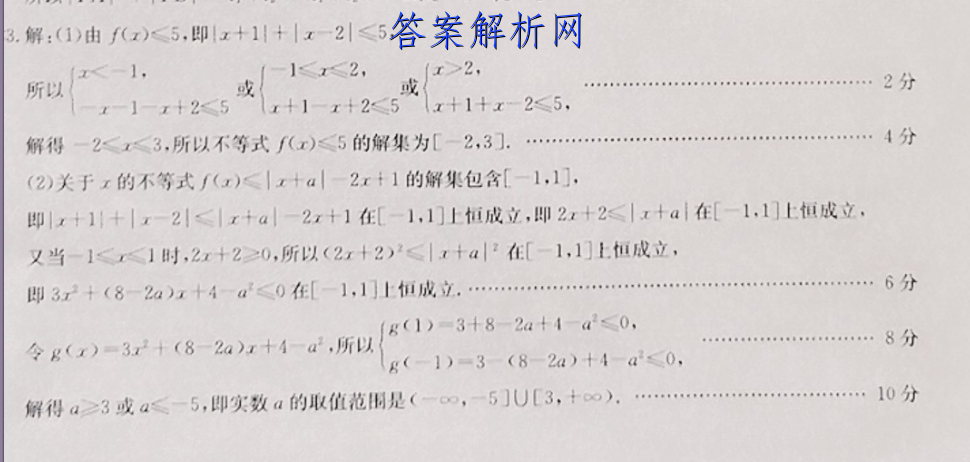 3.解:(1)由 f(x)≤5,即|x+1|+|x-2|≤5
答案解析网
所以{x<-1, -x-1-x+2≤5 或{-1≤x≤2, x+1-x+2≤5 或{x>2, x+1+x-2≤5, ………… 2分
解得 -2≤x≤3,所以不等式 f(x)≤5的解集为[-2,3]. ………… 4分
(2)关于 x 的不等式 f(x)≤|x+a|-2x+1的解集包含[-1,1],
即|x+1|+|x-2|≤|x+a|-2x+1在[-1,1]上恒成立,即 2x+2≤|x+a|在[-1,1]上恒成立,
又当-1≤x≤1时,2x+2≥0,所以(2x+2)²≤|x+a|²在[-1,1]上恒成立,
即 3x²+(8-2a)x+4-a²≤0在[-1,1]上恒成立. ………… 6分
令 g(x)=3x²+(8-2a)x+4-a²,所以{g(1)=3+8-2a+4-a²≤0, g(-1)=3-(8-2a)+4-a²≤0, ………… 8分
解得 a≥3或 a≤-5,即实数 a 的取值范围是(-∞,-5]∪[3,+∞). ………… 10分